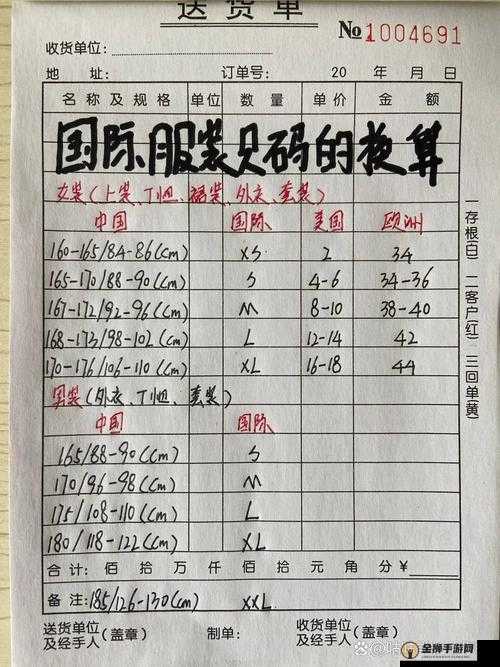 送货单
№1004691
收货单位：
地 址： 订单号： 20 年 月 日
名称及规格 单位 数量 单价 金额
国际服装尺码的换算
女装(上装、T恤、裙装、外衣、套装)
中国 国际 美国 欧洲
160-165/84-86(cm) XS 2 34
165-170/88-90(cm) S 4-6 34-36
167-172/92-96(cm) M 8-10 38-40
168-173/98-102(cm) L 12-14 42
170-176/106-110(cm) XL 16-18 44
男装(外衣、T恤、套装)
中国 国际
165/88-90(cm) S
170/96-98(cm) M
175/108-110(cm) L
180/118-122(cm) XL
合计： 佰 拾 万 仟 佰 拾 元 角 分 ¥
备注：185/126-130(cm) XXL
送货单位及经手人(盖章) 制单： 收货单位及经手人(盖章)
一存根(白) 二客户(红) 三回单(黄)
金狮手游网